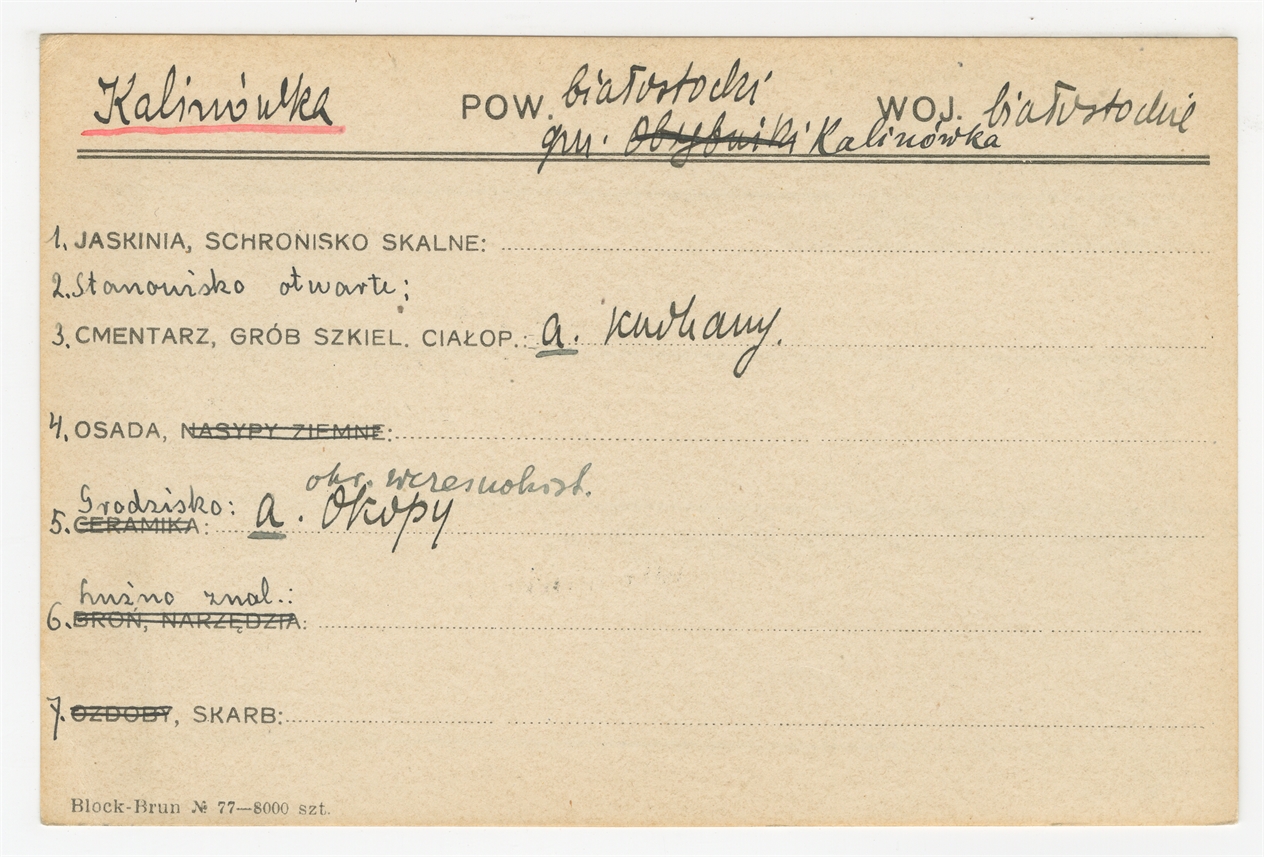 Kalinówka POW. białostocki WOJ. białostockie
gm. Obrębniki Kalinówka
1. JASKINIA, SCHRONISKO SKALNE:
2. Stanowisko otwarte;
3. CMENTARZ, GRÓB SZKIEL. CIAŁOP.: a. kurhany.
4. OSADA, NASYPY ZIEMNE:
okr. wczesnohist.
Grodzisko: a. Okopy
5. CERAMIKA:
Luźno znal.:
6. BROŃ, NARZĘDZIA:
7. OZDOBY, SKARB:
Block-Brun № 77—8000 szt.